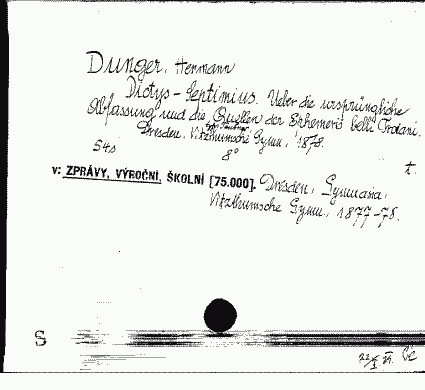 Dunger, Hermann
Dictys-Septimius. Ueber die ursprüngliche
Abfassung und die Quellen der Ephemeris belli Troiani.
Dresden, Vitzthumsche Gymn., 1878.
S4s 8° t.
v: ZPRÁVY, VÝROČNÍ, ŠKOLNÍ [75.000]. Dresden, Gymnasia,
Vitzthumsche Gymn., 1877-78.
S